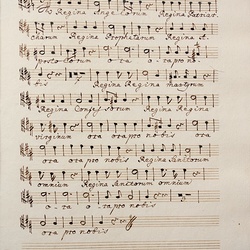 Regina Angelorum Regina Patriar
charum Regina Prophetarum Regina A
postolorum ora ora pro no
bis Regina Regina Martyrum
Regina Confessorum Regina Regina
virginum ora pro nobis ora
ora pro nobis Regina Sanctorum
omnium Regina Sanctorum omnium
ora ora pro nobis
ora pro nobis